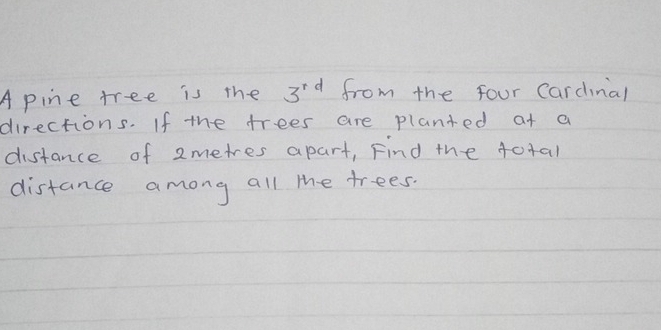 A pine tree is the 3rd from the four Cardinal
directions. If the trees are planted at a
distance of 2metres apart, Find the total
distance among all the trees.